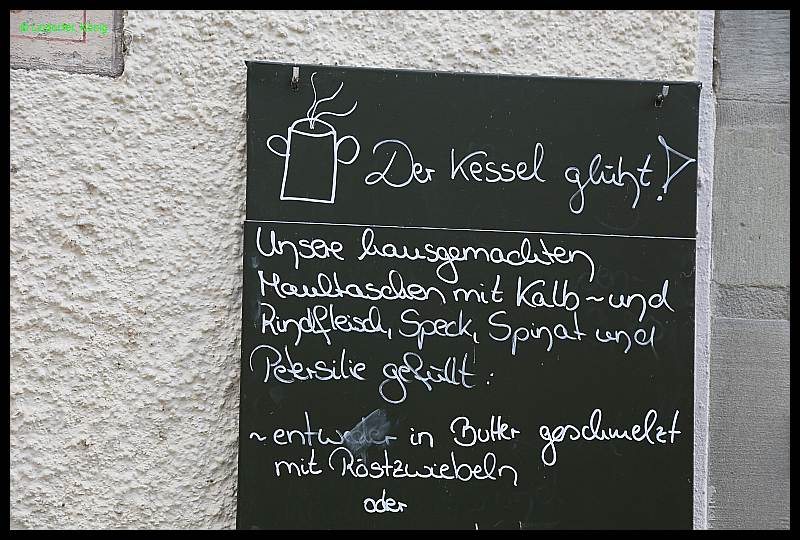 Der Kessel glüht!
Unsere hausgemachten
Maultaschen mit Kalb~und
Rindfleisch, Speck, Spinat und
Petersilie gefüllt:
~ entweder in Butter geschmelzt
mit Röstzwiebeln
oder